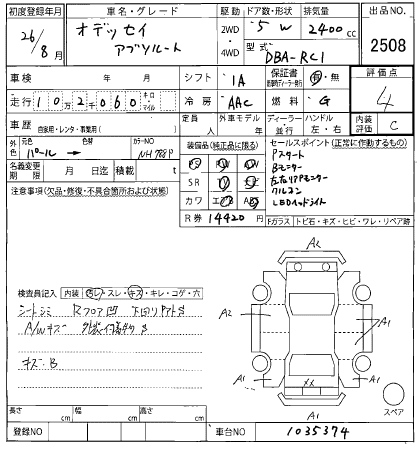 初度登録年月
車名・グレード
駆動
ドア数・形状
排気量
出品NO.
26/8月
オデッセイ
アブソルート
2WD
4WD
5W
2400cc
型式
DBA-RC1
2508
車検
年
月
シフト
IA
保証書
有・無
評価点
走行
102060
キロ
マイル
冷房
AAC
燃料
G
4
車歴
自家用・レンタ・事業用( )
定員
人
外車モデル
年
ディーラー
並行
ハンドル
左・右
内装評価
C
外色
元色
色替
カラーNO
パール
NH788P
装備品(純正品に限る)
セールスポイント(正常に作動するもの)
名義変更期限
月
日迄
積載
t
PS
SR
カワ
AW
エアB
R券
14420円
Pスタート
Bモニター
クルコン
LEDヘッドライト
注意事項(欠品・修復・不具合箇所および状態)
Fガラス
トビ石・キズ・ヒビ・ワレ・リペア跡
検査員記入
内装
汚レ・スレ・キズ・キレ・コゲ・穴
シートシミ
Rフロア凹
A/Wキズ
キズ・B
A2
A2
A1
A1
A1
××
A1
スペア
長さ
cm
幅
cm
高さ
cm
登録NO
車台NO
1035374